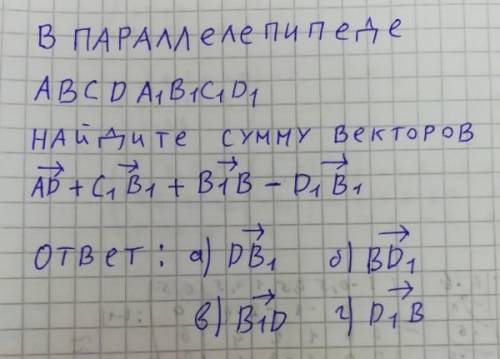 В ПАРАЛЛелепипеде
ABCDA₁B₁C₁D₁
НАЙДИТЕ СУММУ ВЕКТОРОВ
AD→ + C₁B₁→ + B₁B→ - D₁B₁→
ОТВЕТ: а) DB₁→ б) BD₁→
в) B₁D→ г) D₁B→